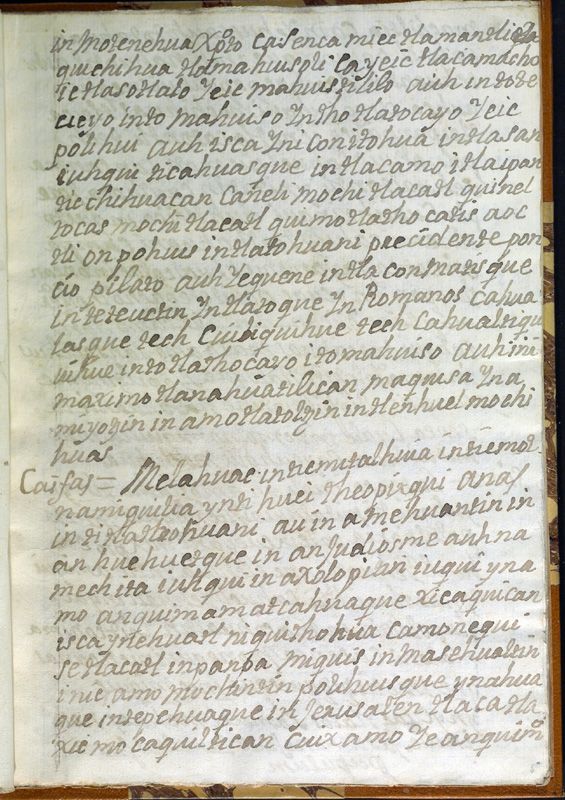 in motenehua Xpto ca senca miec tlamantli
quichihua tlamahuisoli ca yeic tlacamacho
ic tlasotlalo yeic mahuistililo auh in tote
cuyo in to mahuiso yn tho tlatocayo yeic
polihui auh isca yni con itohua intla san
iuhqui ticahuasque intlacamo itla ipan
tic chihuacan ca neli mochi tlacatl quinel
tocas mochi tlacatl quimotlatho catis aoc
tli onpohuis in tlatohuani precidente pon
cio pilato auh yequene intla conmatisque
in teteuctin yn tlatoque yn Romanos cahua
lasque tech cuidiquihue tech cahualtiqui
uihue in to tlathocayo ito mahuiso auh ini
maximo tlanahuatilican maqui sa yna
miyotzin in amotlatoltzin in tlen huel mochi
huas
Caifas = Melahuac in ticmitalhuia in ticmot
namiquilia ynti huei theopixqui anas
in ti tlathohuani au in amehuantin in
an huehuetque in an Judiosme auhna
mech ita iuhqui in axolopitin iuqui yna
mo anquimamatcahuaque xicaquican
isca ynehuatl niquithohua ca monequi
se tlacatl inpanpa miquis in masehualtin
inic amo mochintin polihuisque ynahua
que in tepehuaque in Jerusalen tlaca tla
xicmocaquiltican cuix amo ye anquim